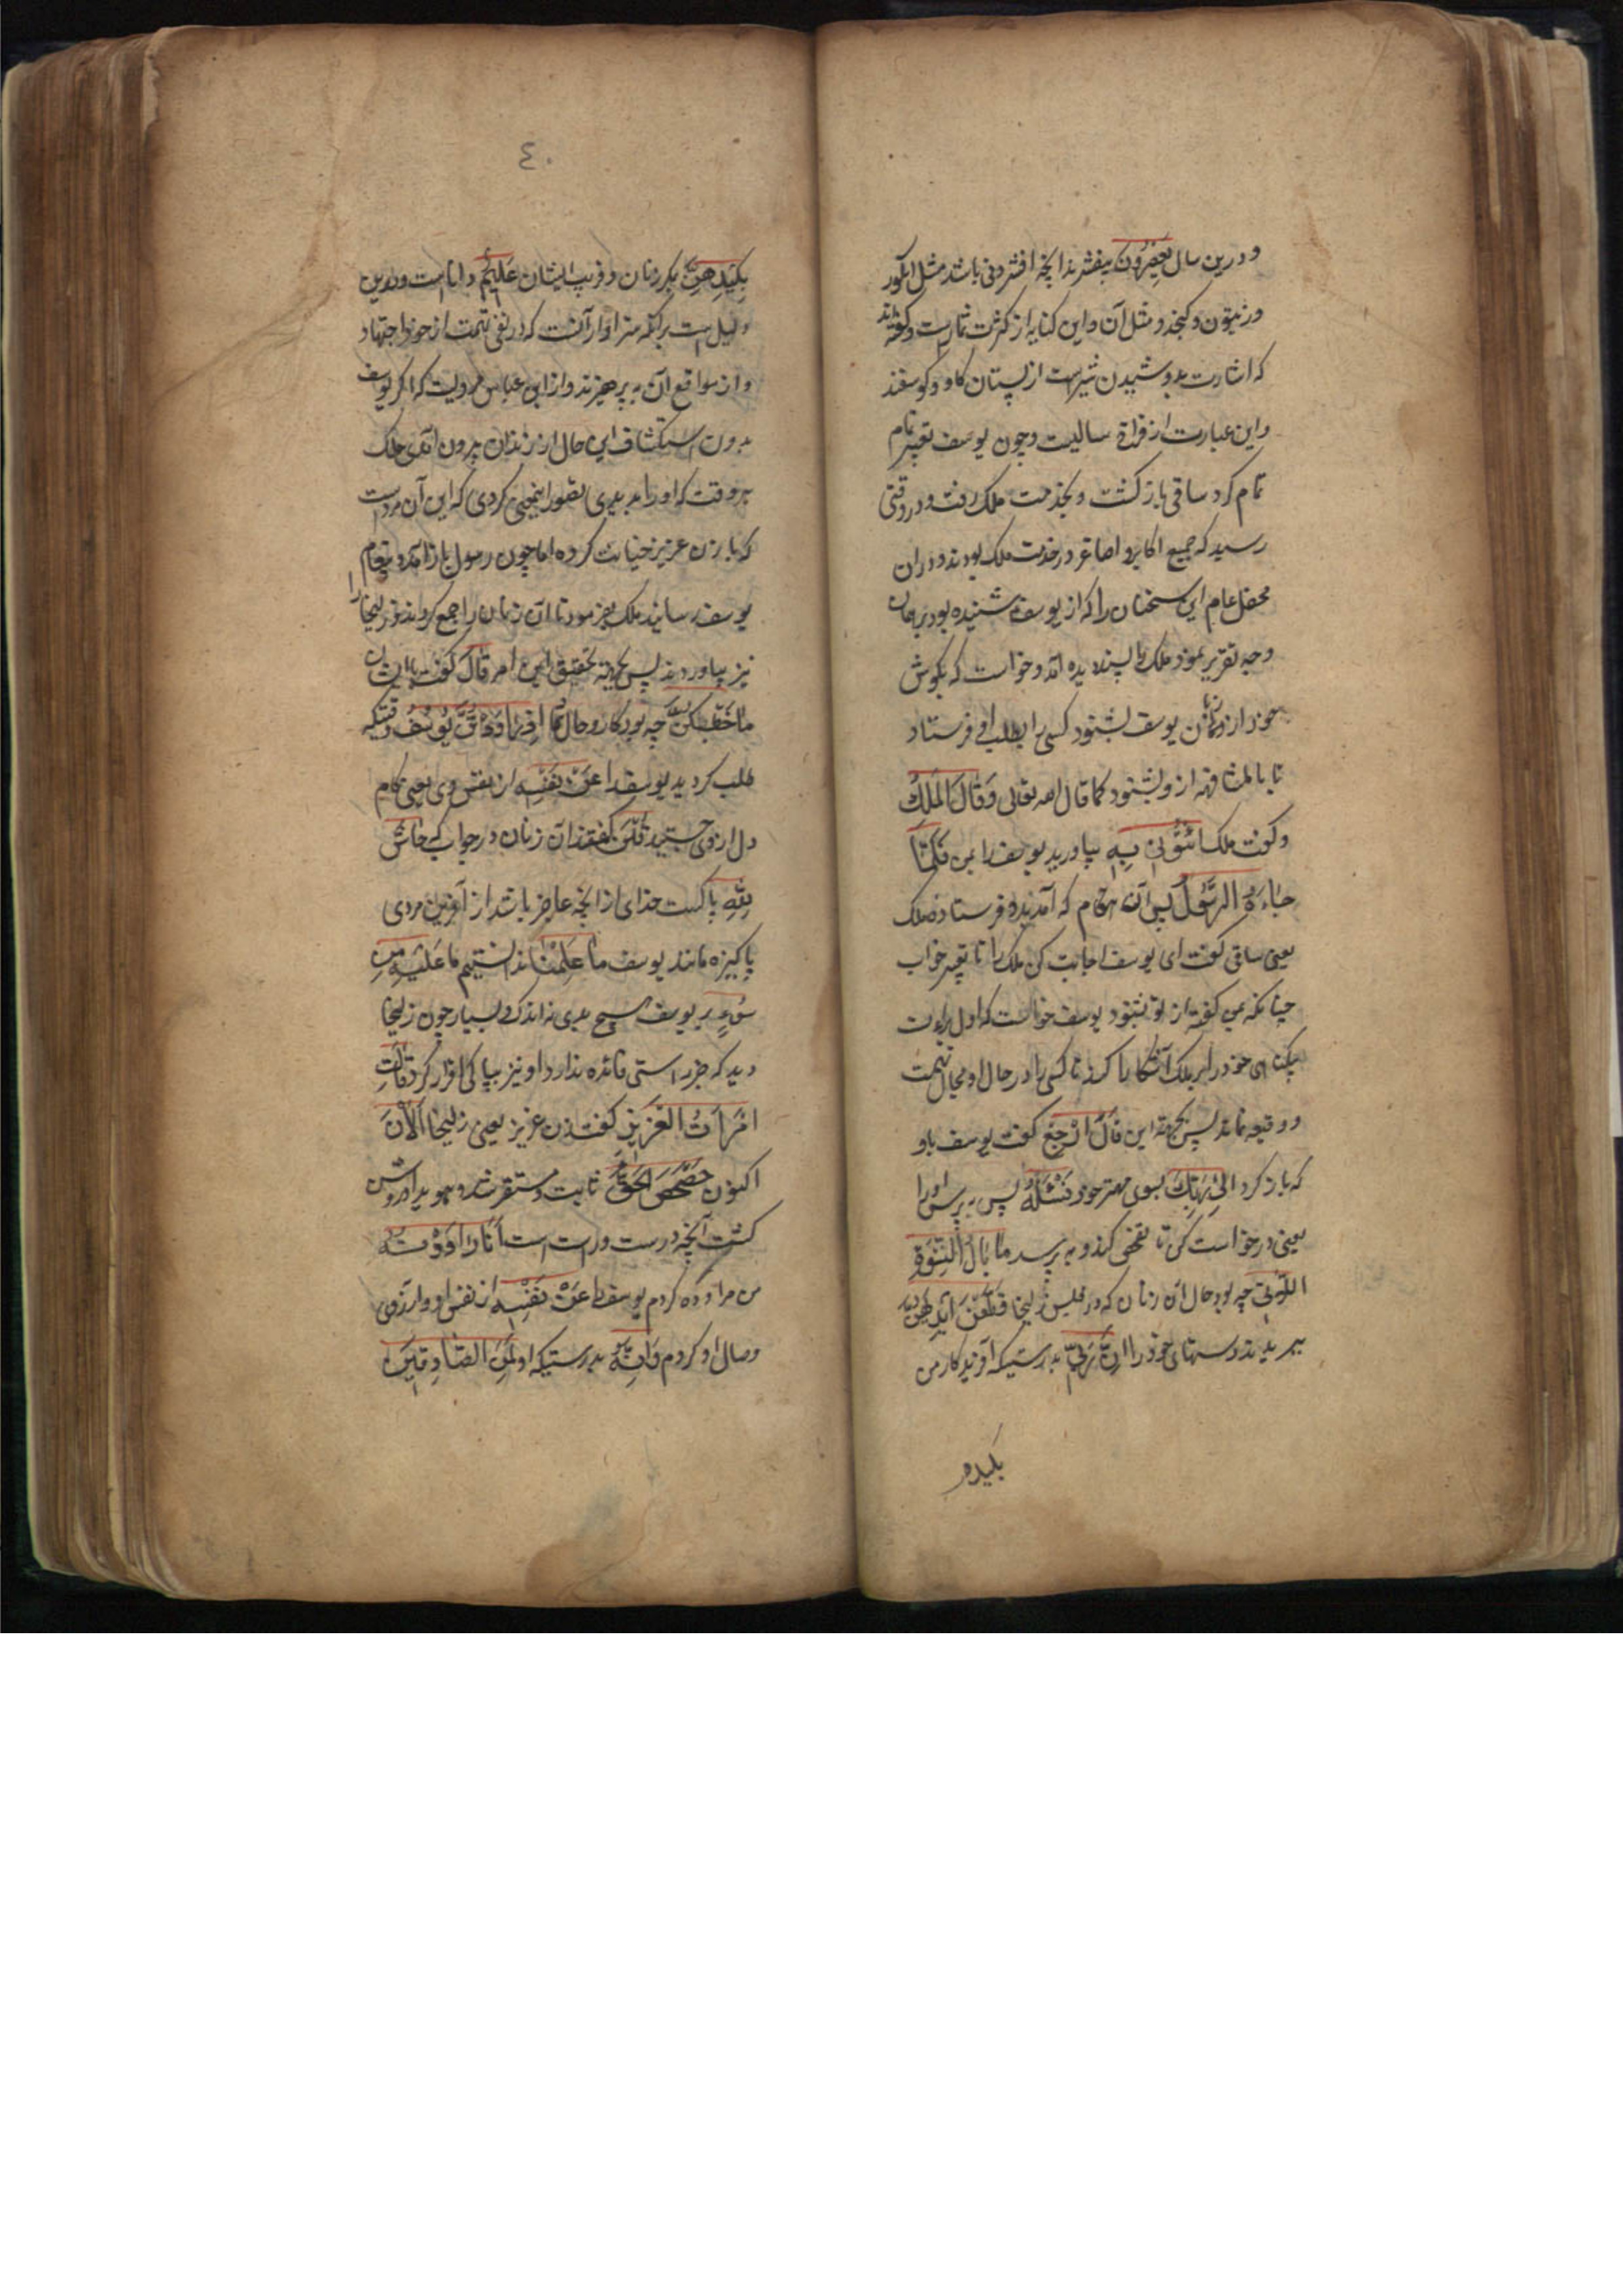 و درین سال یعصرون بیفشرند آنچه افشردنی باشد مثل انگور
و زیتون و کنجد و مثل آن و این کنایه از کثرت ثمارست و گفته‌اند
که اشارت بدوشیدن شیرست از پستان گاو و گوسفند
و این عبارت از فراخ سالیست و چون یوسف تعبیر تمام
تمام کرد ساقی بازگشت و بخدمت ملک رفت و در وقتی
رسید که جمیع اکابر و اصاغر در خدمت ملک بودند و در ان
محفل عام این سخنان را که از یوسف شنیده بود بر همان
وجه تقریر نمود ملک را پسندیده آمد و خواست که بگوش
خود از زبان یوسف بشنود کسی را بطلب او فرستاد
تا بالمشافهه ازو بشنود کما قال الله تعالی وَقَالَ الْمَلِكُ
و گفت ملک ائْتُونِی بِهِ بیاورید یوسف را بمن فَلَمَّا
جَاءَهُ الرَّسُولُ پس آن هنگام که آمد بدو فرستاده ملک
یعنی ساقی گفت ای یوسف اجابت کن ملک را تا تعبیر خواب
چنانکه بمن گفتهٔ از تو بشنود یوسف خواست که اول براءت
بیگناهی خود را بر ملک آشکارا کند تا کسی را در حال او مجال تهمت
و وقیعه نماند پس بجهة این قَالَ ارْجِعْ گفت یوسف باو
که باز گرد اِلیٰ رَبِّكَ بسوی مهتر خود فَسْئَلْهُ پس بپرس او را
یعنی درخواست کن تا تفحص کند و بپرسد مَا بَالُ النِّسْوَةِ
اللَّاتِی چه بود حال آن زنان که در مجلس زلیخا قَطَّعْنَ اَیْدِیَهُنَّ
ببریدند دستهای خود را اِنَّ رَبِّی بدرستیکه آفریدکار من
بکیدهن
٤٠
بِكَیْدِهِنَّ بمکر زنان و فریب ایشان عَلِیمٌ داناست و درین
دلیل‌ست برآنکه سزاوار آنست که در نفی تهمت از خود اجتهاد
و از مواقع آن به پرهیزند و از ابی عباس مرویست که اگر یوسف
بدون استکشاف این حال از زندان بیرون آمدی ملک
هر وقت که او را بدیدی تصور اینچنین کردی که این آن مردست
که با زن عزیز خیانت کرده اما چون رسول باز آمد و پیغام
یوسف رسانید ملک بفرمود تا آن زنان را جمع کردند و زلیخا را
نیز بیاوردند پس بجهة تحقیق این امر قَالَ گفت بایشان
مَا خَطْبُكُنَّ چه بود کار و حال شما اِذْ رَاوَدْتُنَّ یُوسُفَ وقتیکه
طلب کردید یوسف را عَنْ نَفْسِهِ از نفس وی یعنی کام
دل از وی جستید قُلْنَ گفتند آن زنان در جواب که حَاشَ
لِلّٰهِ پاکست خدای از آنچه عاجز باشد از آفریدن مردی
پاکیزه مانند یوسف مَا عَلِمْنَا ندانستیم ما عَلَیْهِ مِنْ
سُوءٍ بر یوسف هیچ بدی نه اندک و نه بسیار چون زلیخا
دید که جز راستی فائده ندارد او نیز بپاکی اقرار کرد قَالَتِ
امْرَاَتُ الْعَزِیزِ گفت زن عزیز یعنی زلیخا اَلْاٰنَ
اکنون حَصْحَصَ الْحَقُّ ثابت و مستقر شد و هویدا و روشن
گشت آنچه درست و راست است اَنَا رَاوَدْتُهُ
من مراوده کردم یوسف را عَنْ نَفْسِهِ از نفس او و آرزوی
وصال او کردم وَاِنَّهُ بدرستیکه او لَمِنَ الصَّادِقِینَ